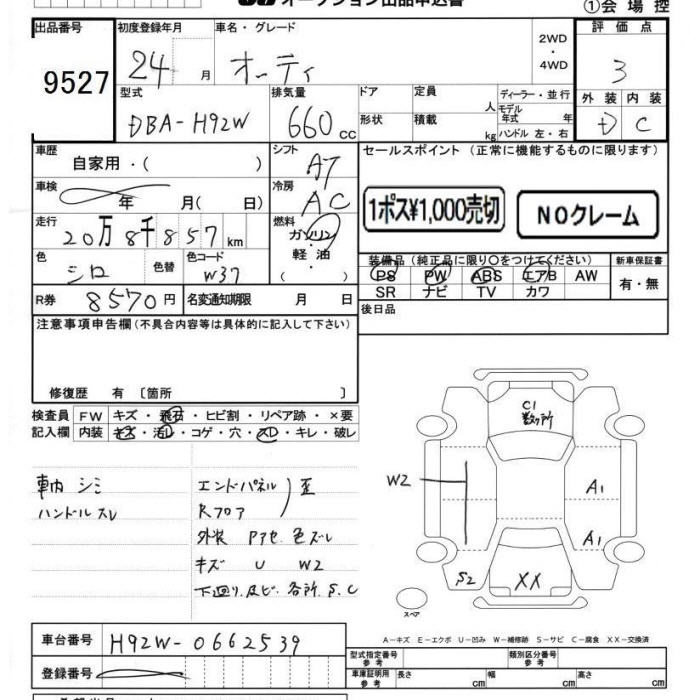 オークション出品申込書
①会場控
出品番号 初度登録年月 車名・グレード 評価点
9527 24 月 オーティ 2WD・4WD 3
型式 排気量 ドア 定員 人 ディーラー・並行 外装 内装
DBA-H92W 660 cc 形状 積載 kg モデル年式 年 ハンドル 左・右 D C
車歴 自家用・( ) シフト AT セールスポイント (正常に機能するものに限ります)
車検 年 月( 日) 冷房 AC 1ポス¥1,000売切 NOクレーム
走行 20万8千857km 燃料 ガソリン・軽油・( )
色 シロ 色替 色コード W37 装備品(純正品に限り○をつけてください) 新車保証書
PS PW ABS エアB AW 有・無
SR ナビ TV カワ
R券 8570円 名変通知期限 月 日 後日品
注意事項申告欄(不具合内容等は具体的に記入して下さい)
修復歴 有 〔箇所 〕
検査員 FW キズ・飛石・ヒビ割・リペア跡・×要
記入欄 内装 キズ・汚レ・コゲ・穴・スレ・キレ・破レ
車内 シミ
ハンドル スレ
エンドパネル
Rフロア
歪
外装 Pアセ、色ズレ
キズ U W2
下回り、及ビ、各所、S.C
C1
数ヶ所
W2
A1
A1
S2
XX
スペア
A-キズ E-エクボ U-凹み W-補修跡 S-サビ C-腐食 XX-交換済
車台番号 H92W-0662539
型式指定番号 参考 類別区分番号 参考
登録番号
車庫証明用 参考 長さ cm 幅 cm 高さ cm